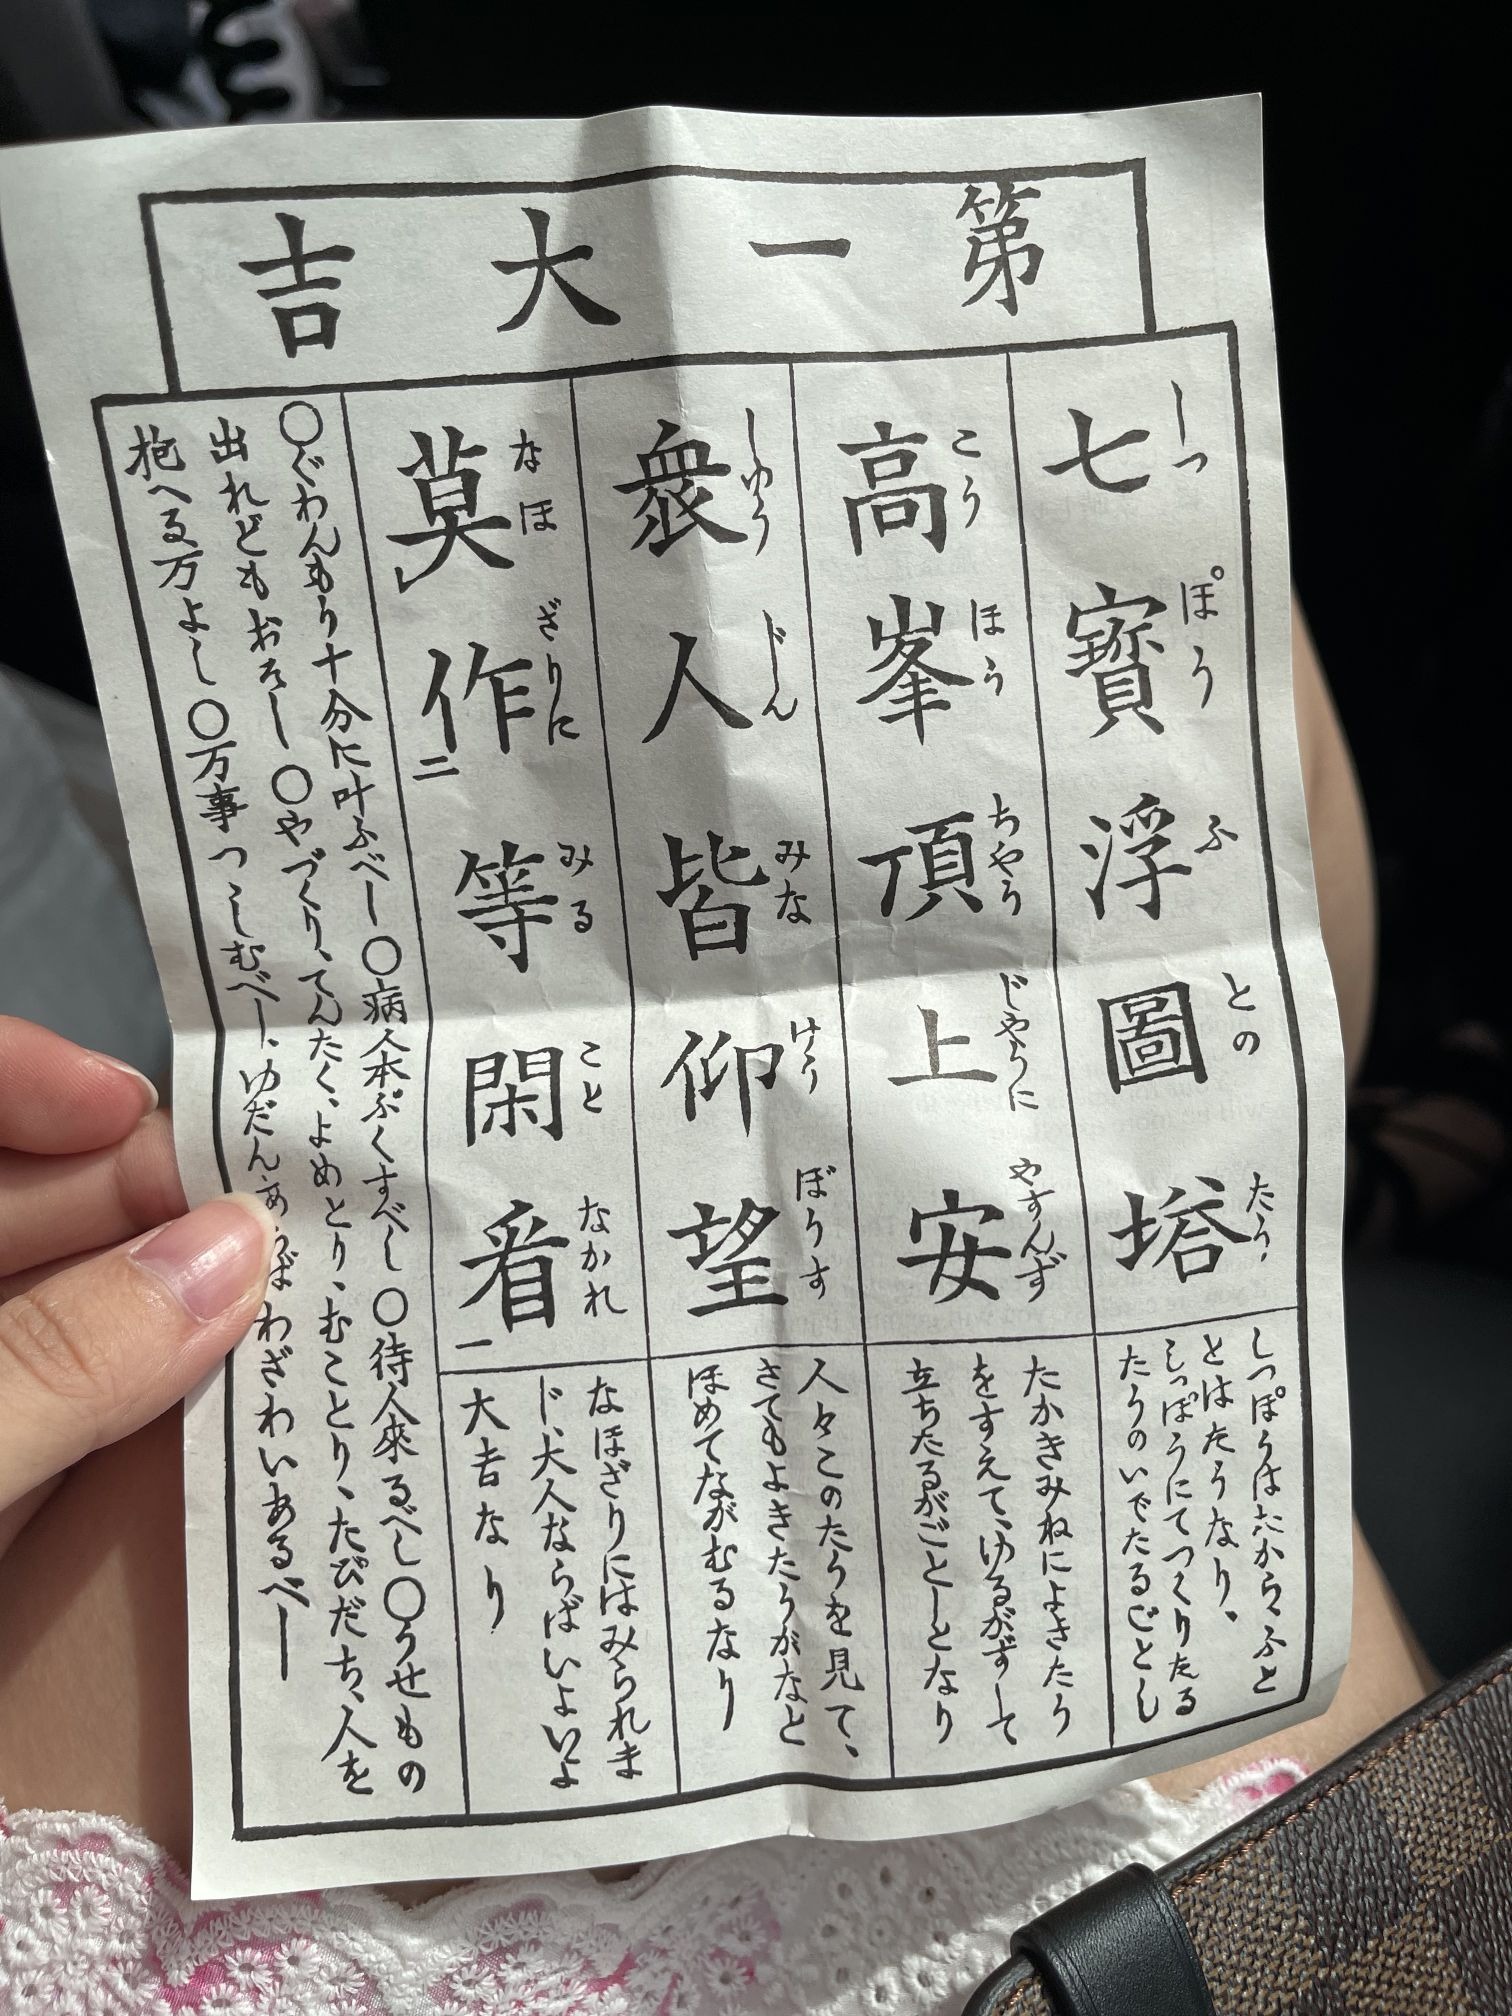 第一大吉
七寶浮圖塔
しつ ぽう ふ との たう
しつぽうはたから、ふと
とはたうなり。
しつぽうにてつくりたる
たうのいでたるごとし
高峯頂上安
こう ほう ちやう じやうに やすんず
たかきみねによきたう
をすえて、ゆるがずして
立ちたるがごとしとなり
衆人皆仰望
しゆう じん みな けう ぼうす
人々このたうを見て、
さてもよきたうがなと
ほめてながむるなり
莫作二等閑看一
なほ ざりに みる こと なかれ
なほざりにはみられま
じ、大人ならばいよいよ
大吉なり
〇ぐわんもう十分に叶ふべし〇病人本ぷくすべし〇待人來るべし〇うせもの
出れどもおそし〇やづくり、てんたく、よめとり、むことり、たびだち、人を
抱へる万よし〇万事つゝしむべし、ゆだんあらばわざわいあるべし